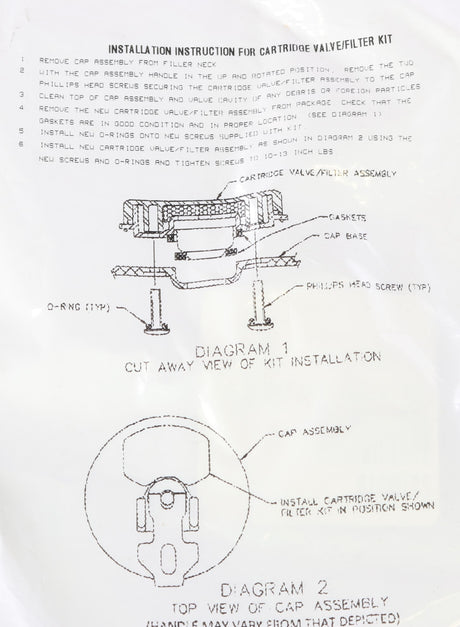 INSTALLATION INSTRUCTION FOR CARTRIDGE VALVE/FILTER KIT
1 REMOVE CAP ASSEMBLY FROM FILLER NECK
2 WITH THE CAP ASSEMBLY HANDLE IN THE UP AND ROTATED POSITION. REMOVE THE TWO
PHILLIPS HEAD SCREWS SECURING THE CARTRIDGE VALVE/FILTER ASSEMBLY TO THE CAP
3 CLEAN TOP OF CAP ASSEMBLY AND VALVE CAVITY OF ANY DEBRIS OR FOREIGN PARTICLES
4 REMOVE THE NEW CARTRIDGE VALVE/FILTER ASSEMBLY FROM PACKAGE. CHECK THAT THE
GASKETS ARE IN GOOD CONDITION AND IN PROPER LOCATION. (SEE DIAGRAM 1)
5 INSTALL NEW O-RINGS ONTO NEW SCREWS SUPPLIED WITH KIT.
6 INSTALL NEW CARTRIDGE VALVE/FILTER ASSEMBLY AS SHOWN IN DIAGRAM 2 USING THE
NEW SCREWS AND O-RINGS AND TIGHTEN SCREWS TO 10-13 INCH LBS
CARTRIDGE VALVE/FILTER ASSEMBLY
GASKETS
CAP BASE
PHILLIPS HEAD SCREW (TYP)
O-RING (TYP)
DIAGRAM 1
CUT AWAY VIEW OF KIT INSTALLATION
CAP ASSEMBLY
INSTALL CARTRIDGE VALVE/
FILTER KIT IN POSITION SHOWN
DIAGRAM 2
TOP VIEW OF CAP ASSEMBLY
(HANDLE MAY VARY FROM THAT DEPICTED)